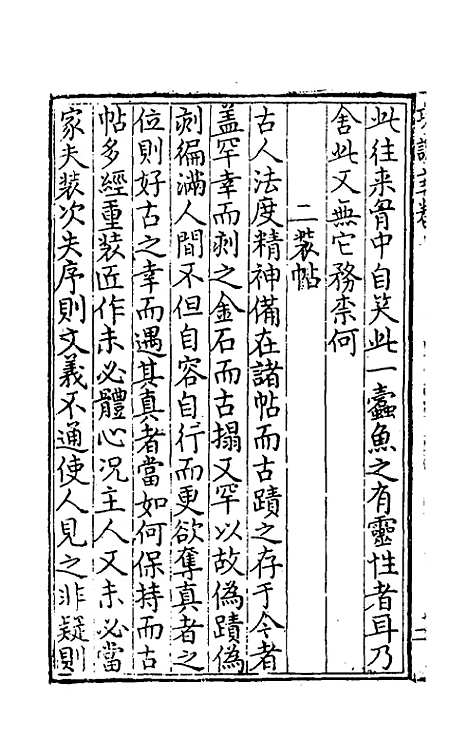 此往来胷中自笑此一蠹魚之有靈性者耳乃
舍此又無它務柰何
二裝帖
古人法度精神備在諸帖而古蹟之存于今者
盖罕幸而刺之金石而古搨又罕以故偽蹟偽
刺徧滿人間不但自容自行而更欲奪真者之
位則好古之幸而遇其真者當如何保持而古
帖多經重装匠作未必體心况主人又未必當
家夫装次失序則文義不通使人見之非疑則